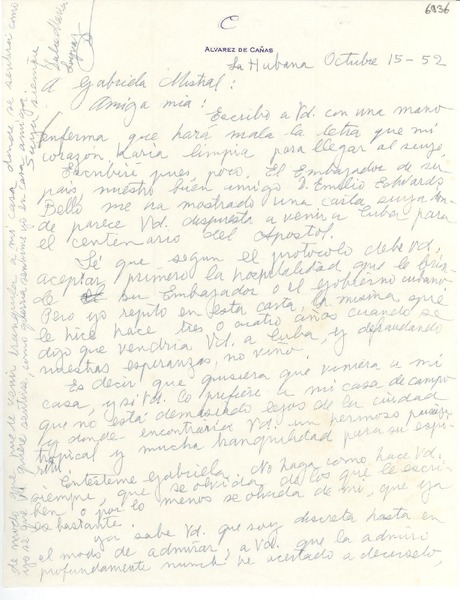 6936
C
ALVAREZ DE CAÑAS
La Habana Octubre 15-52
A Gabriela Mistral:
Amiga mia:
Escribo a Vd. con una mano
enferma que hará mala la letra que mi
corazón haria limpia para llegar al suyo.
Escribiré pues, poco. El Embajador de su
país, nuestro buen amigo D. Emilio Edwards
Bello me ha mostrado una carta suya don-
de parece Vd. dispuesta a venir a Cuba para
el centenario del Apostol.
Sé que segun el protocolo debe Vd.
aceptar primero la hospitalidad que le brin-
de su Embajador o el gobierno cubano
Pero yo repito en esta carta, la misma que
le hice hace tres o cuatro años cuando se
dijo que vendria Vd. a Cuba, y defraudando
nuestras esperanzas, no vino.
Es decir que quisiera que viniera a mi
casa, y si Vd. lo prefiere a mi casa de campo
que no está demasiado lejos de la ciudad
y donde encontraria Vd. un hermoso paisaje
tropical y mucha tranquilidad para su espi-
ritu.
Contésteme Gabriela. No haga como hace Vd.
siempre, que se olvida de los que le escri-
ben o por lo menos se olvida de mi, que ya
es bastante.
Ya sabe Vd. que soy discreta hasta en
el modo de admirar; a Vd. que la admiro
profundamente nunca he acertado a decirselo,
de modo que puede venir tranquila a mi casa donde se sentirá como
yo sé que Vd. quiere sentirse, como quisiera sentirme yo en casa amiga.
Suya siempre
Dulce María
Loynaz